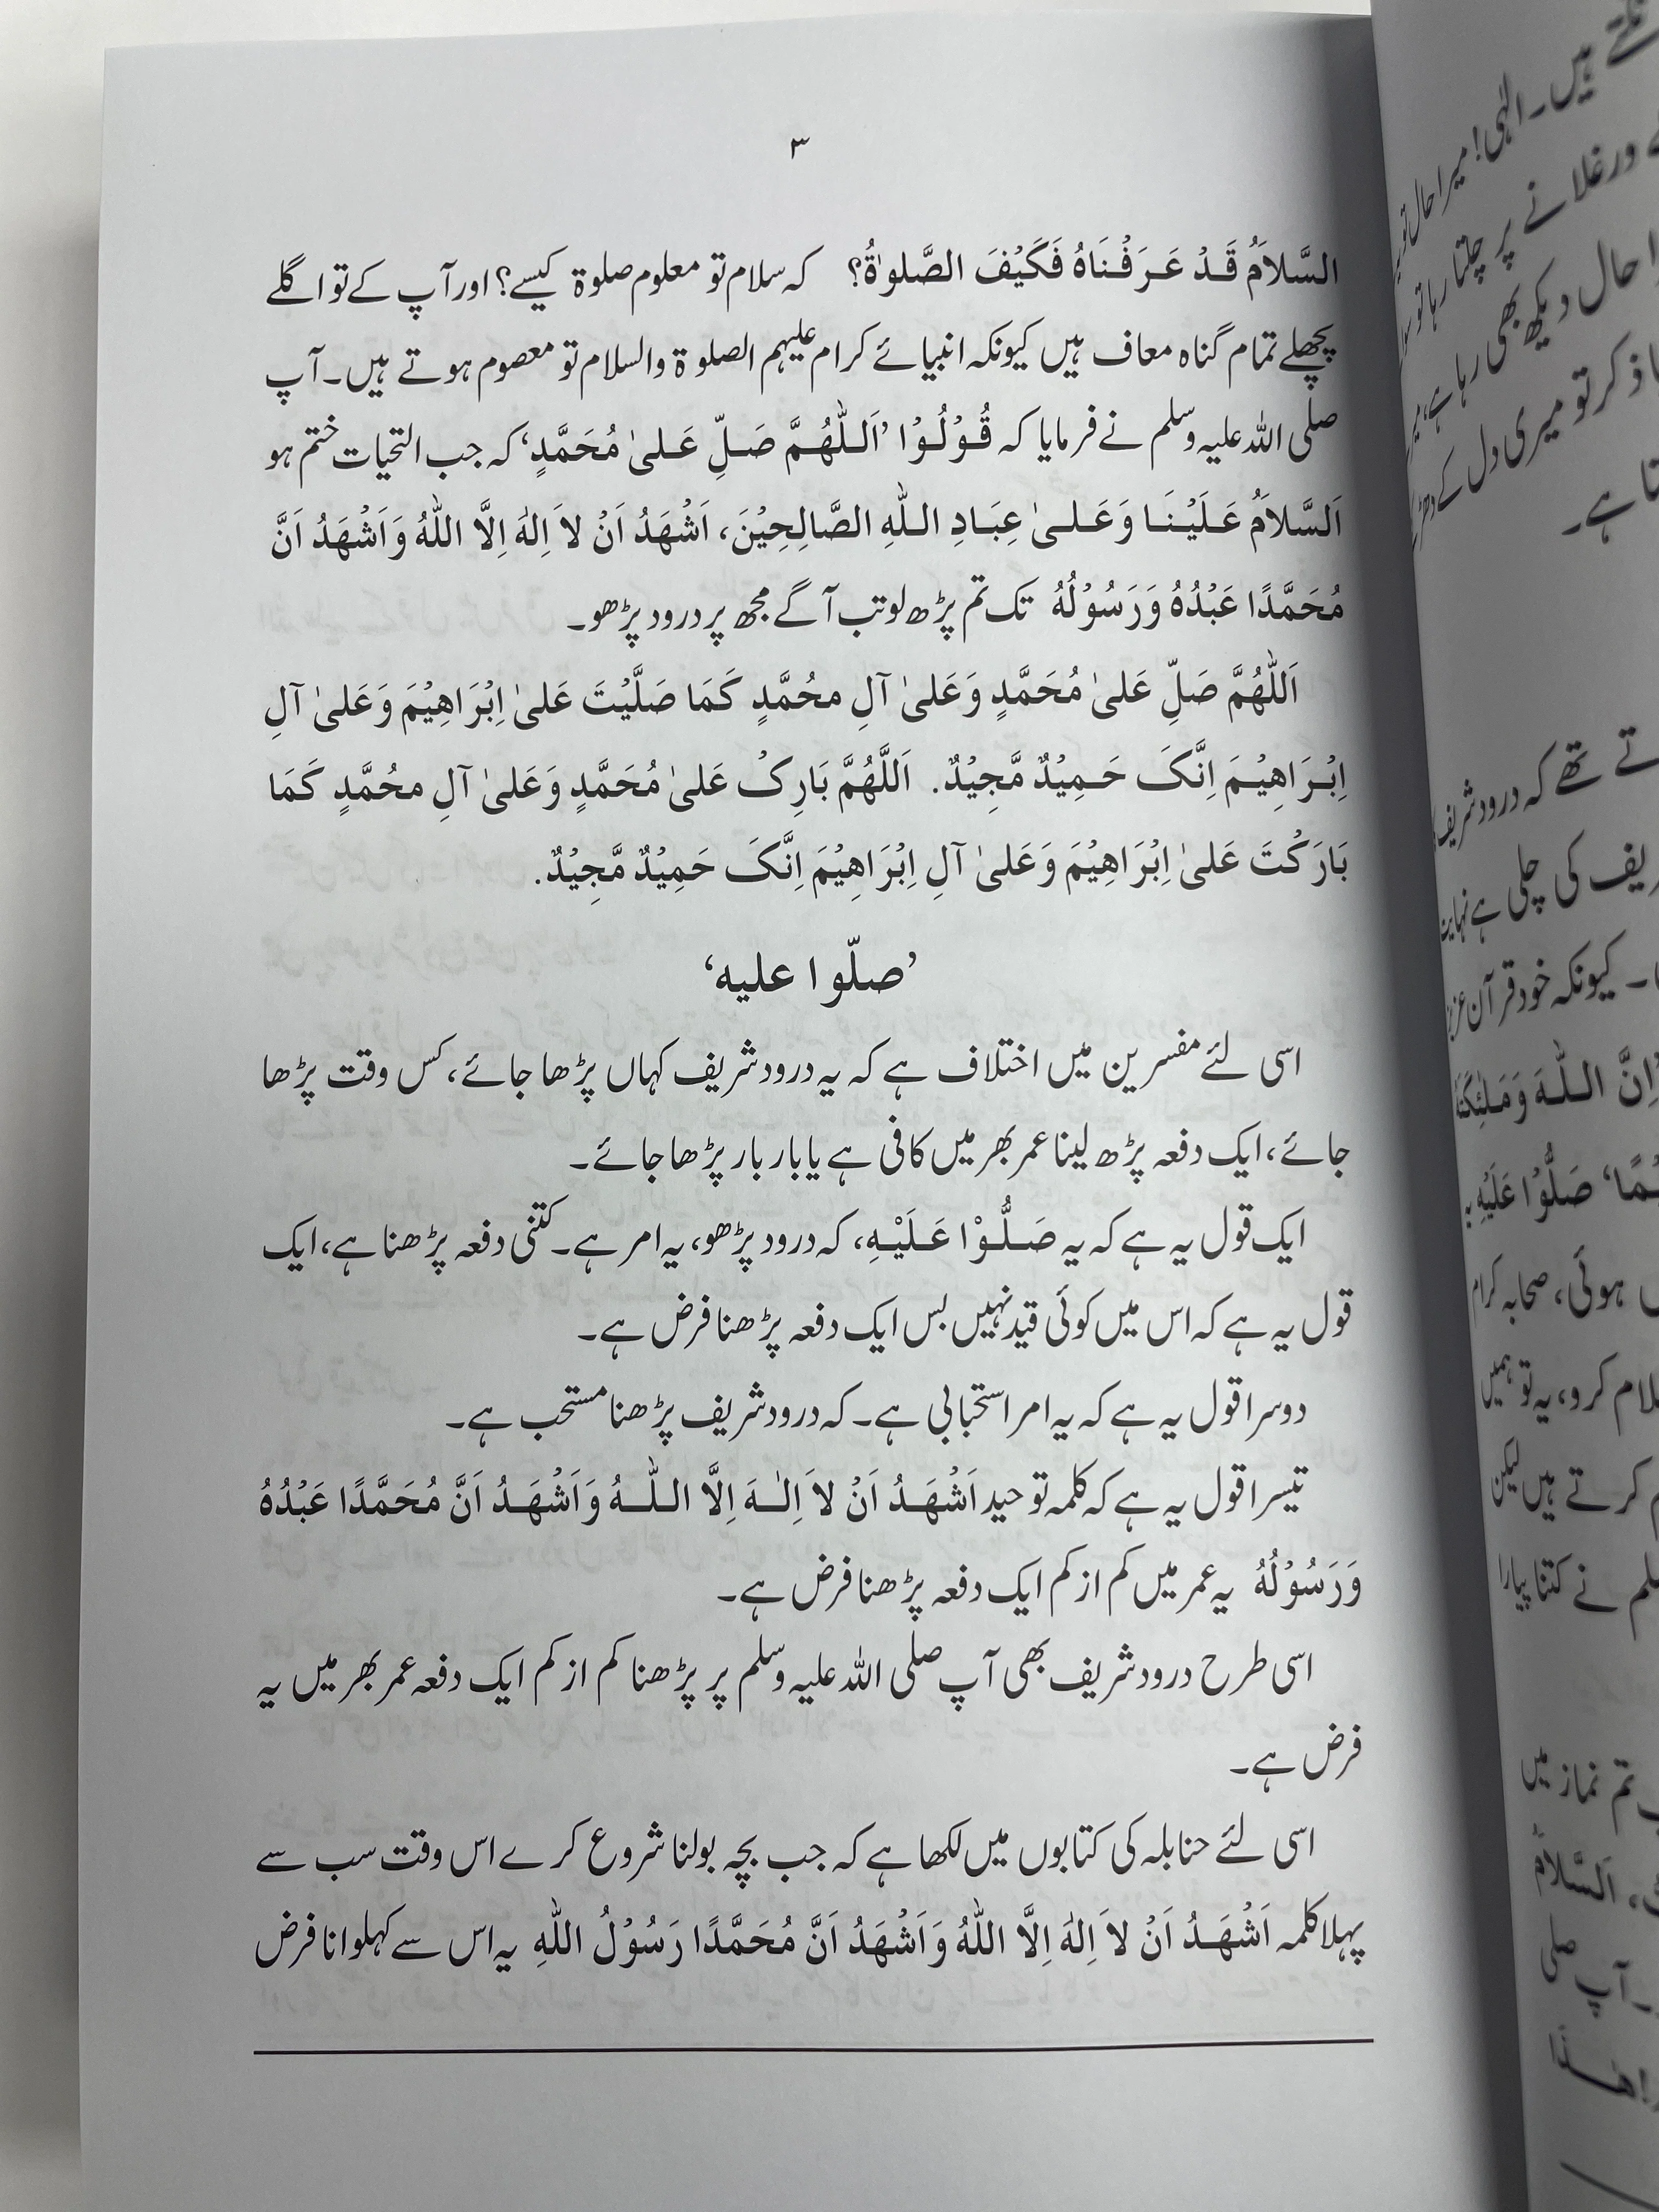 ۳
السَّلاَمُ قَدْ عَرَفْنَاهُ فَكَيْفَ الصَّلوٰةُ؟ کہ سلام تو معلوم صلوۃ کیسے؟ اور آپ کے تو اگلے
پچھلے تمام گناہ معاف ہیں کیونکہ انبیائے کرام علیہم الصلوۃ والسلام تو معصوم ہوتے ہیں۔ آپ
صلی اللہ علیہ وسلم نے فرمایا کہ قُوْلُوْا ’اَللّٰهُمَّ صَلِّ عَلیٰ مُحَمَّدٍ‘ کہ جب التحیات ختم ہو
اَلسَّلاَمُ عَلَيْنَا وَعَلیٰ عِبَادِ اللّٰهِ الصَّالِحِيْنَ، اَشْهَدُ اَنْ لاَ اِلٰهَ اِلَّا اللّٰهُ وَاَشْهَدُ اَنَّ
مُحَمَّدًا عَبْدُهُ وَرَسُوْلُهُ تک تم پڑھ لو تب آگے مجھ پر درود پڑھو۔
اَللّٰهُمَّ صَلِّ عَلیٰ مُحَمَّدٍ وَعَلیٰ آلِ محُمَّدٍ كَمَا صَلَّيْتَ عَلیٰ اِبْرَاهِيْمَ وَعَلیٰ آلِ
اِبْرَاهِيْمَ اِنَّکَ حَمِيْدٌ مَّجِيْدٌ. اَللَّهُمَّ بَارِکْ عَلیٰ مُحَمَّدٍ وَعَلیٰ آلِ محُمَّدٍ كَمَا
بَارَكْتَ عَلیٰ اِبْرَاهِيْمَ وَعَلیٰ آلِ اِبْرَاهِيْمَ اِنَّکَ حَمِيْدٌ مَّجِيْدٌ.
’صلّوا علیه‘
اسی لئے مفسرین میں اختلاف ہے کہ یہ درود شریف کہاں پڑھا جائے، کس وقت پڑھا
جائے، ایک دفعہ پڑھ لینا عمر بھر میں کافی ہے یا بار بار پڑھا جائے۔
ایک قول یہ ہے کہ یہ صَلُّوْا عَلَيْهِ، کہ درود پڑھو، یہ امر ہے۔ کتنی دفعہ پڑھنا ہے، ایک
قول یہ ہے کہ اس میں کوئی قید نہیں بس ایک دفعہ پڑھنا فرض ہے۔
دوسرا قول یہ ہے کہ یہ امر استحبابی ہے۔ کہ درود شریف پڑھنا مستحب ہے۔
تیسرا قول یہ ہے کہ کلمہ توحید اَشْهَدُ اَنْ لاَ اِلٰهَ اِلَّا اللّٰهُ وَاَشْهَدُ اَنَّ مُحَمَّدًا عَبْدُهُ
وَرَسُوْلُهُ یہ عمر میں کم از کم ایک دفعہ پڑھنا فرض ہے۔
اسی طرح درود شریف بھی آپ صلی اللہ علیہ وسلم پر پڑھنا کم از کم ایک دفعہ عمر بھر میں یہ
فرض ہے۔
اسی لئے حنابلہ کی کتابوں میں لکھا ہے کہ جب بچہ بولنا شروع کرے اس وقت سب سے
پہلا کلمہ اَشْهَدُ اَنْ لاَ اِلٰهَ اِلَّا اللّٰهُ وَاَشْهَدُ اَنَّ مُحَمَّدًا رَسُوْلُ اللّٰهِ یہ اس سے کہلوانا فرض